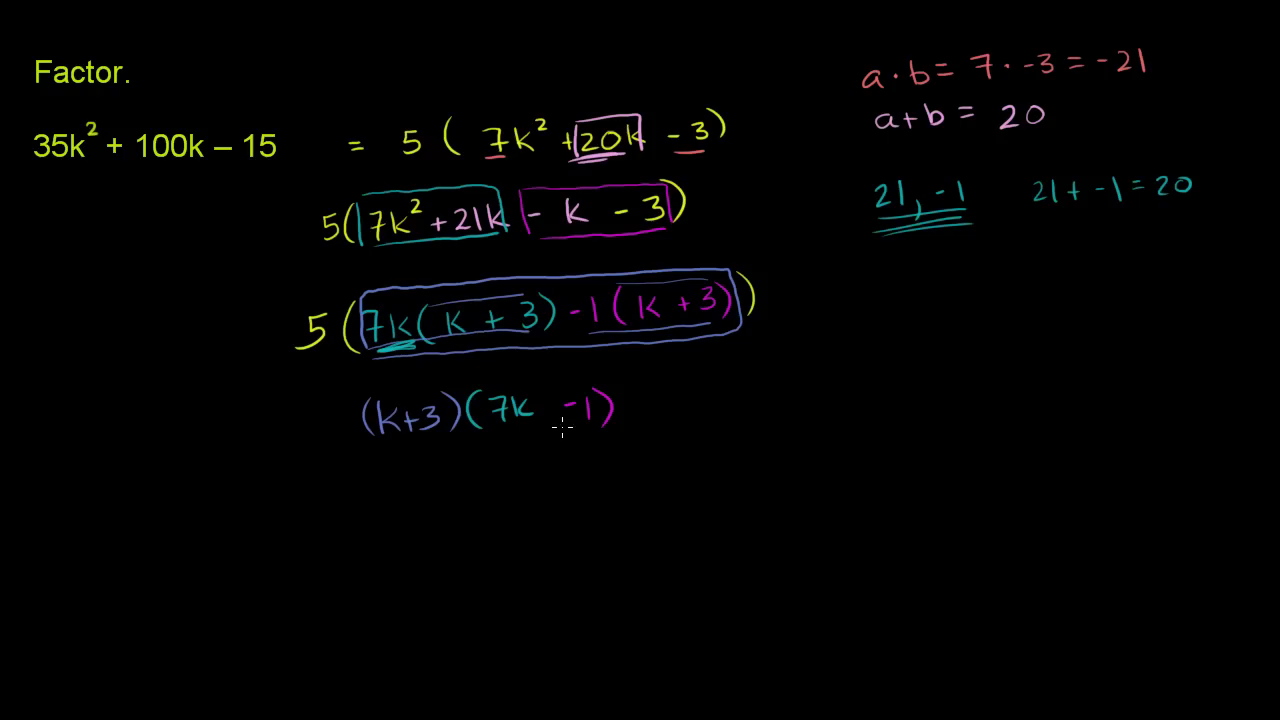 Factor.
35k² + 100k – 15 = 5 ( 7k² + 20k - 3 )
5( 7k² + 21k - k - 3 )
5 ( 7k( k + 3 ) - 1 ( k + 3 ) )
(k+3)(7k - 1)
a · b = 7 · -3 = -21
a + b = 20
21, -1 21 + -1 = 20